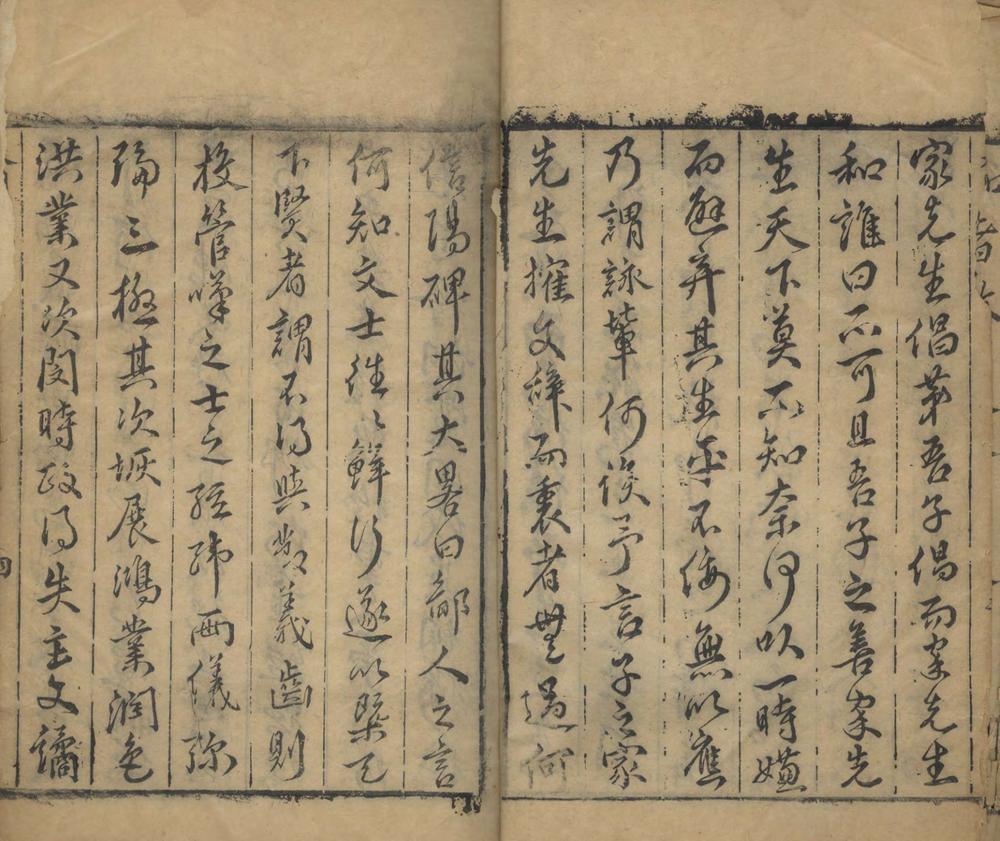 家先生倡第吾子倡而家先生
和誰曰不可且吾子之善家先
生天下莫不知奈何以一時嫌
而遽弃其生平不佞無以應
乃謂詠輩何俟予言子之家
先生擅文辭而衷者無過何
信陽碑其大畧曰鄙人之言
何知文士往々鮮行遂以槩天
下賢者謂不得與節義齒則
投管嘆之士之經緯兩儀弥
綸三極其次恢展鴻業潤色
洪業又次閔時政得失主文譎